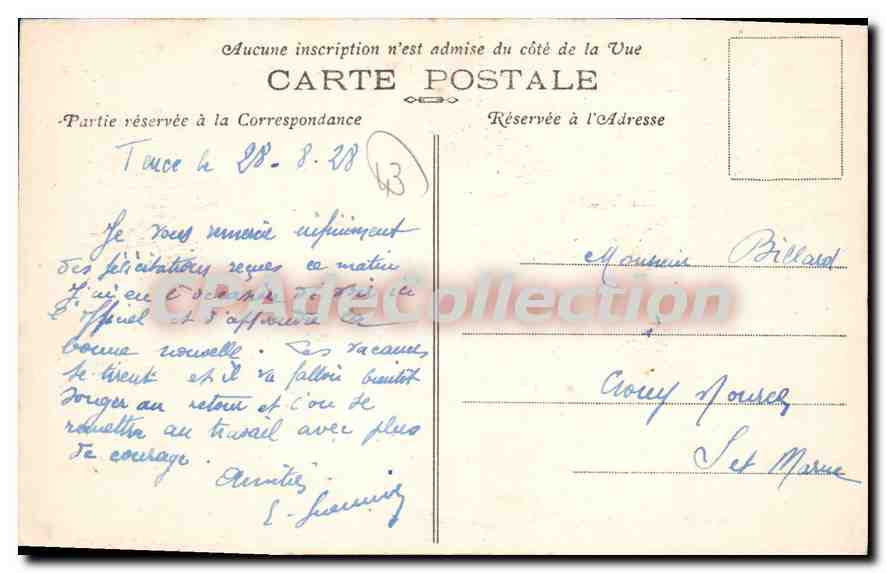 Aucune inscription n'est admise du côté de la Vue
CARTE POSTALE
Partie réservée à la Correspondance
Réservée à l'Adresse
Tence le 28-8-28
43
Je vous remercie infiniment
des félicitations reçues ce matin
J'ai eu l'occasion de voir
l'officiel et d'apprendre la
bonne nouvelle. Les vacances
se tirent et il va falloir bientôt
songer au retour et l'on se
remettra au travail avec plus
de courage.
Amitiés
E.
Monsieur Billard
à
Crouy
S et Marne
CPAdeCollection